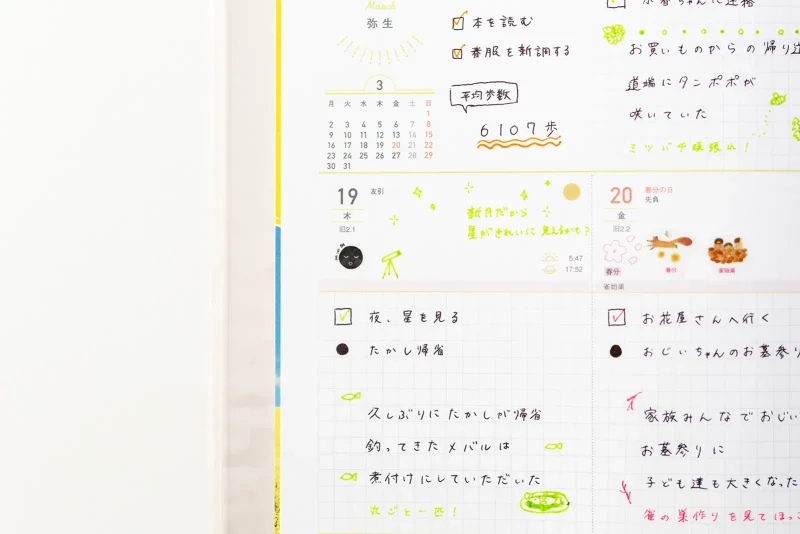 March
弥生
3
月 火 水 木 金 土 日
1
2 3 4 5 6 7 8
9 10 11 12 13 14 15
16 17 18 19 20 21 22
23 24 25 26 27 28 29
30 31
本を読む
春服を新調する
平均歩数
6107歩
ちゃんに連絡
お買いものからの帰り道
道端にタンポポが
咲いていた
ミツバチ頑張れ!
19
友引
木
旧2.1
新月だから
星がきれいに見えるかも?
5:47
17:52
夜、星を見る
たかし帰省
久しぶりにたかしが帰省
釣ってきたメバルは
煮付けにしていただいた
丸ごと一匹!
20
春分の日
先負
金
旧2.2
春分
春分
雀始巣
雀始巣
お花屋さんへ行く
おじいちゃんのお墓参り
家族みんなでおじい
お墓参りに
子ども達も大きくなった
雀の巣作りを見てほっこ